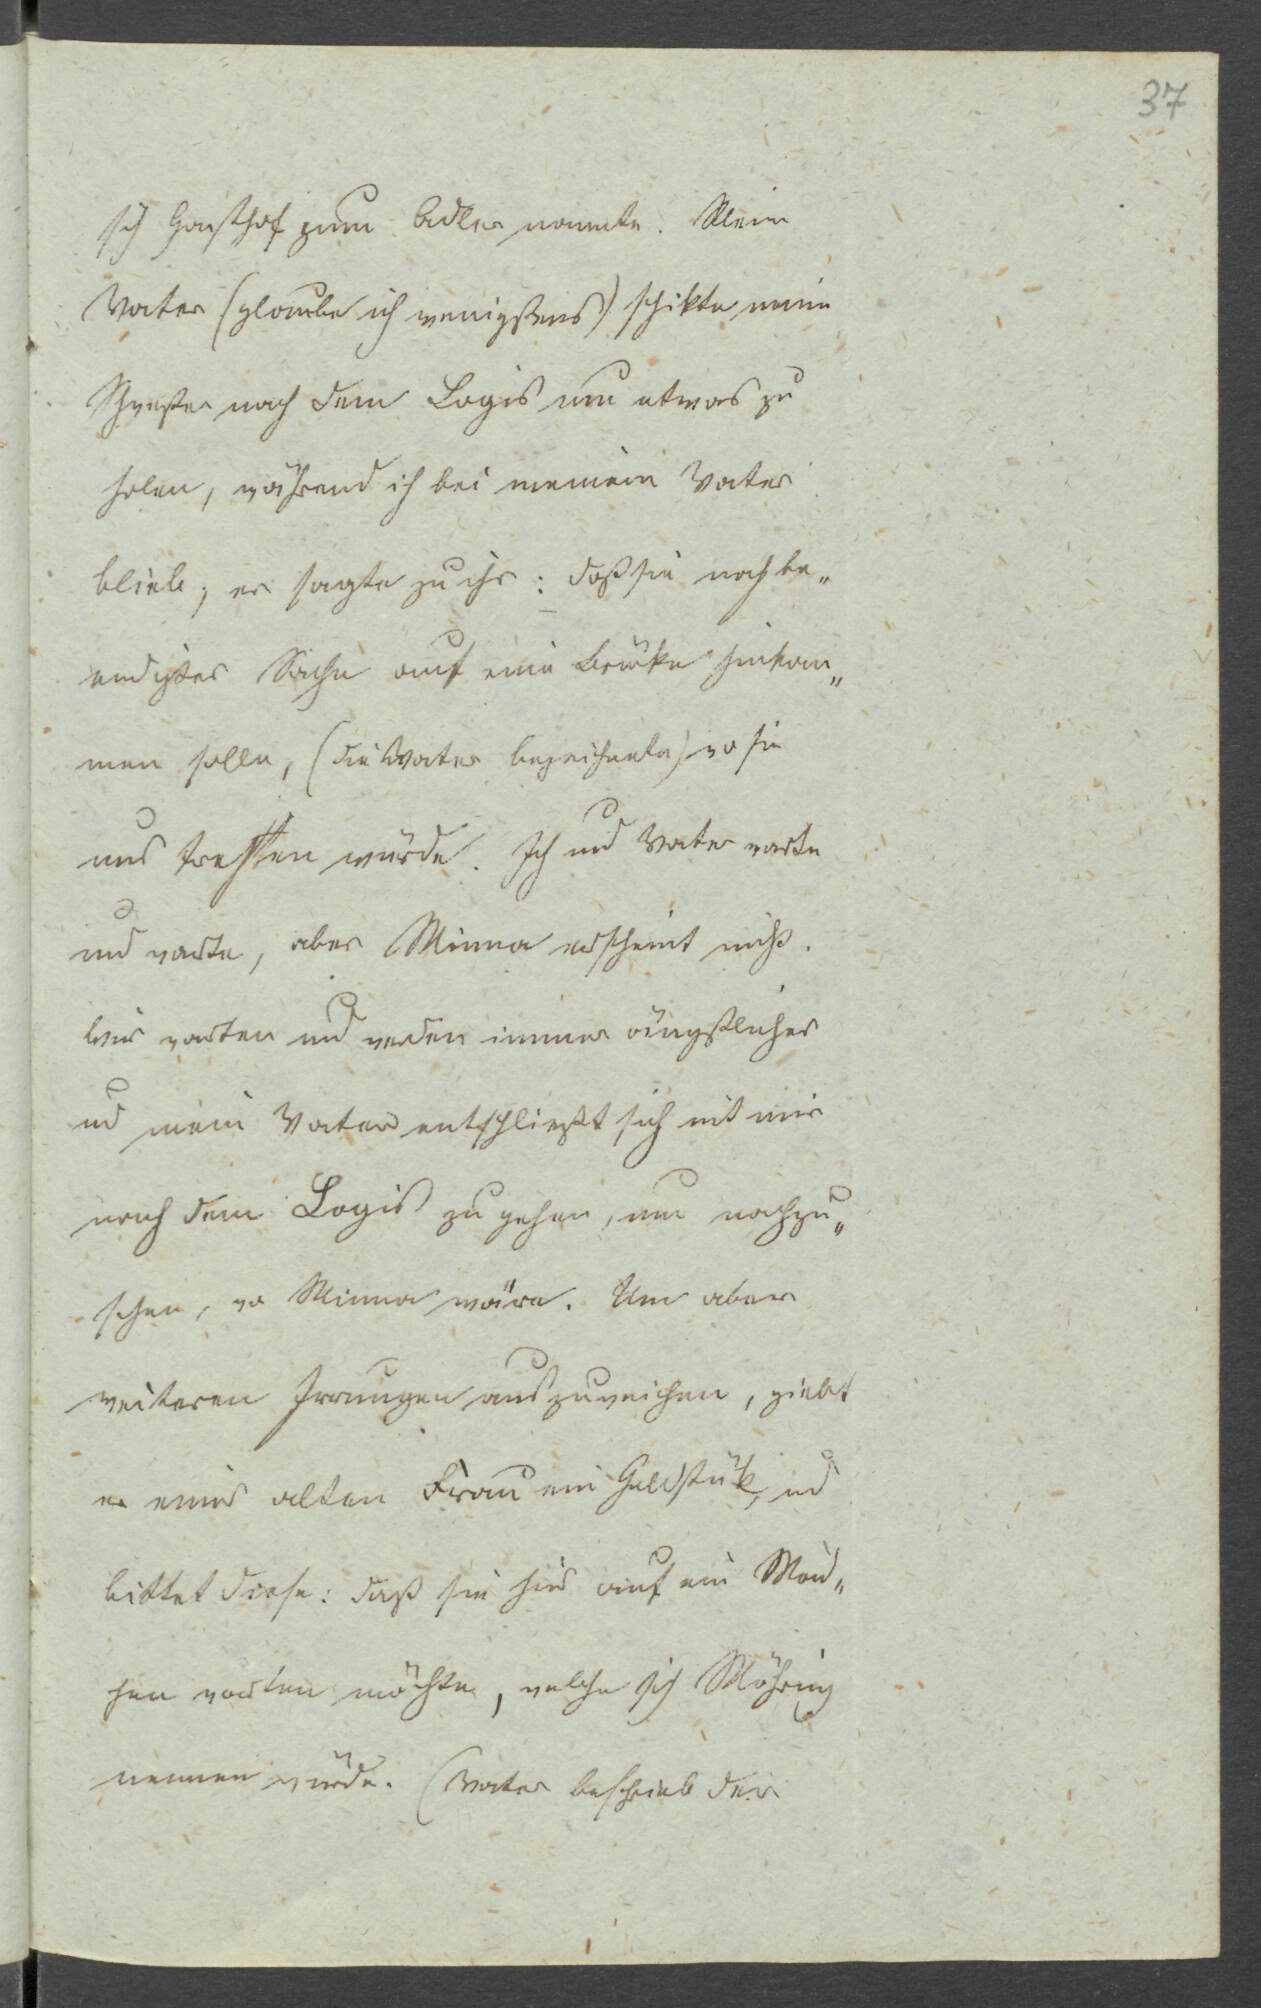 37
sich Gasthof zum Adler nannte. Mein
Vater (glaube ich wenigstens) schikte meine
Schwester nach dem Logis um etwas zu
holen, während ich bei meinem Vater
blieb; er sagte zu ihr: daß sie nach be„
endigter Sache auf eine Brüke hinkom„
men solle, (die Vater bezeichnete) wo sie
uns treffen würde. Ich und Vater warte
und warte, aber Minna erscheint nicht.
Wir warten und werden immer ängstlicher
und mein Vater entschließt sich mit mir
nach dem Logis zu gehen, um nachzu„
sehen, wo Minna wäre. Um aber
weiteren Irrungen auszuweichen, giebt
er einer alten Frau ein Geldstük, und
bittet diese: daß sie hier auf ein Mäd„
chen warten möchte, welche sich Möhring
nennen würde. (Vater beschrieb der